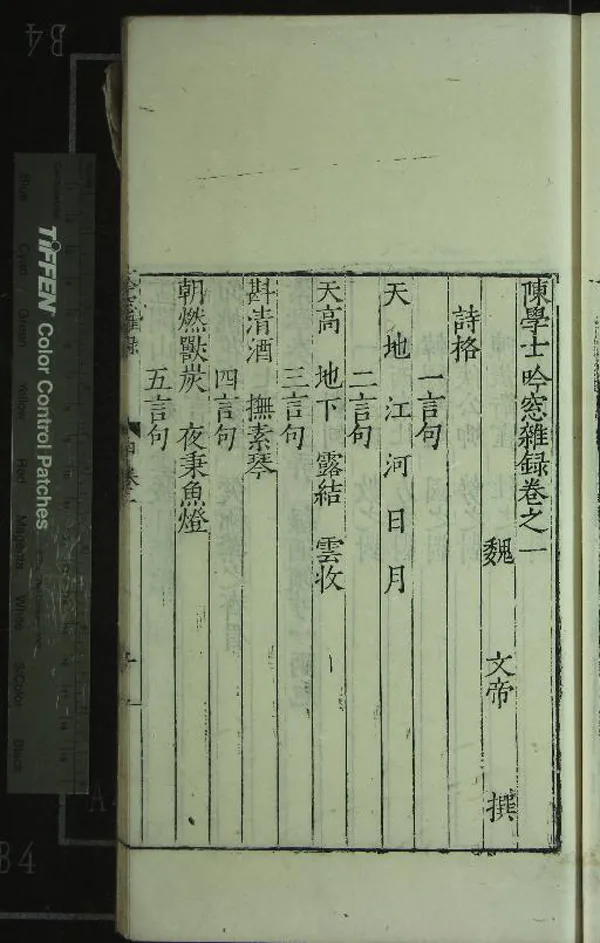 陳學士吟窓雜録卷之一
魏 文帝 撰
詩格
一言句
天 地 江 河 日 月
二言句
天高 地下 露結 雲收
三言句
斟清酒 撫素琴
四言句
朝燃獸炭 夜秉魚燈
五言句
TIFFEN Color Control Patches
Blue
Cyan
Green
Yellow
Red
Magenta
White
3/Color
Black
B4
B4